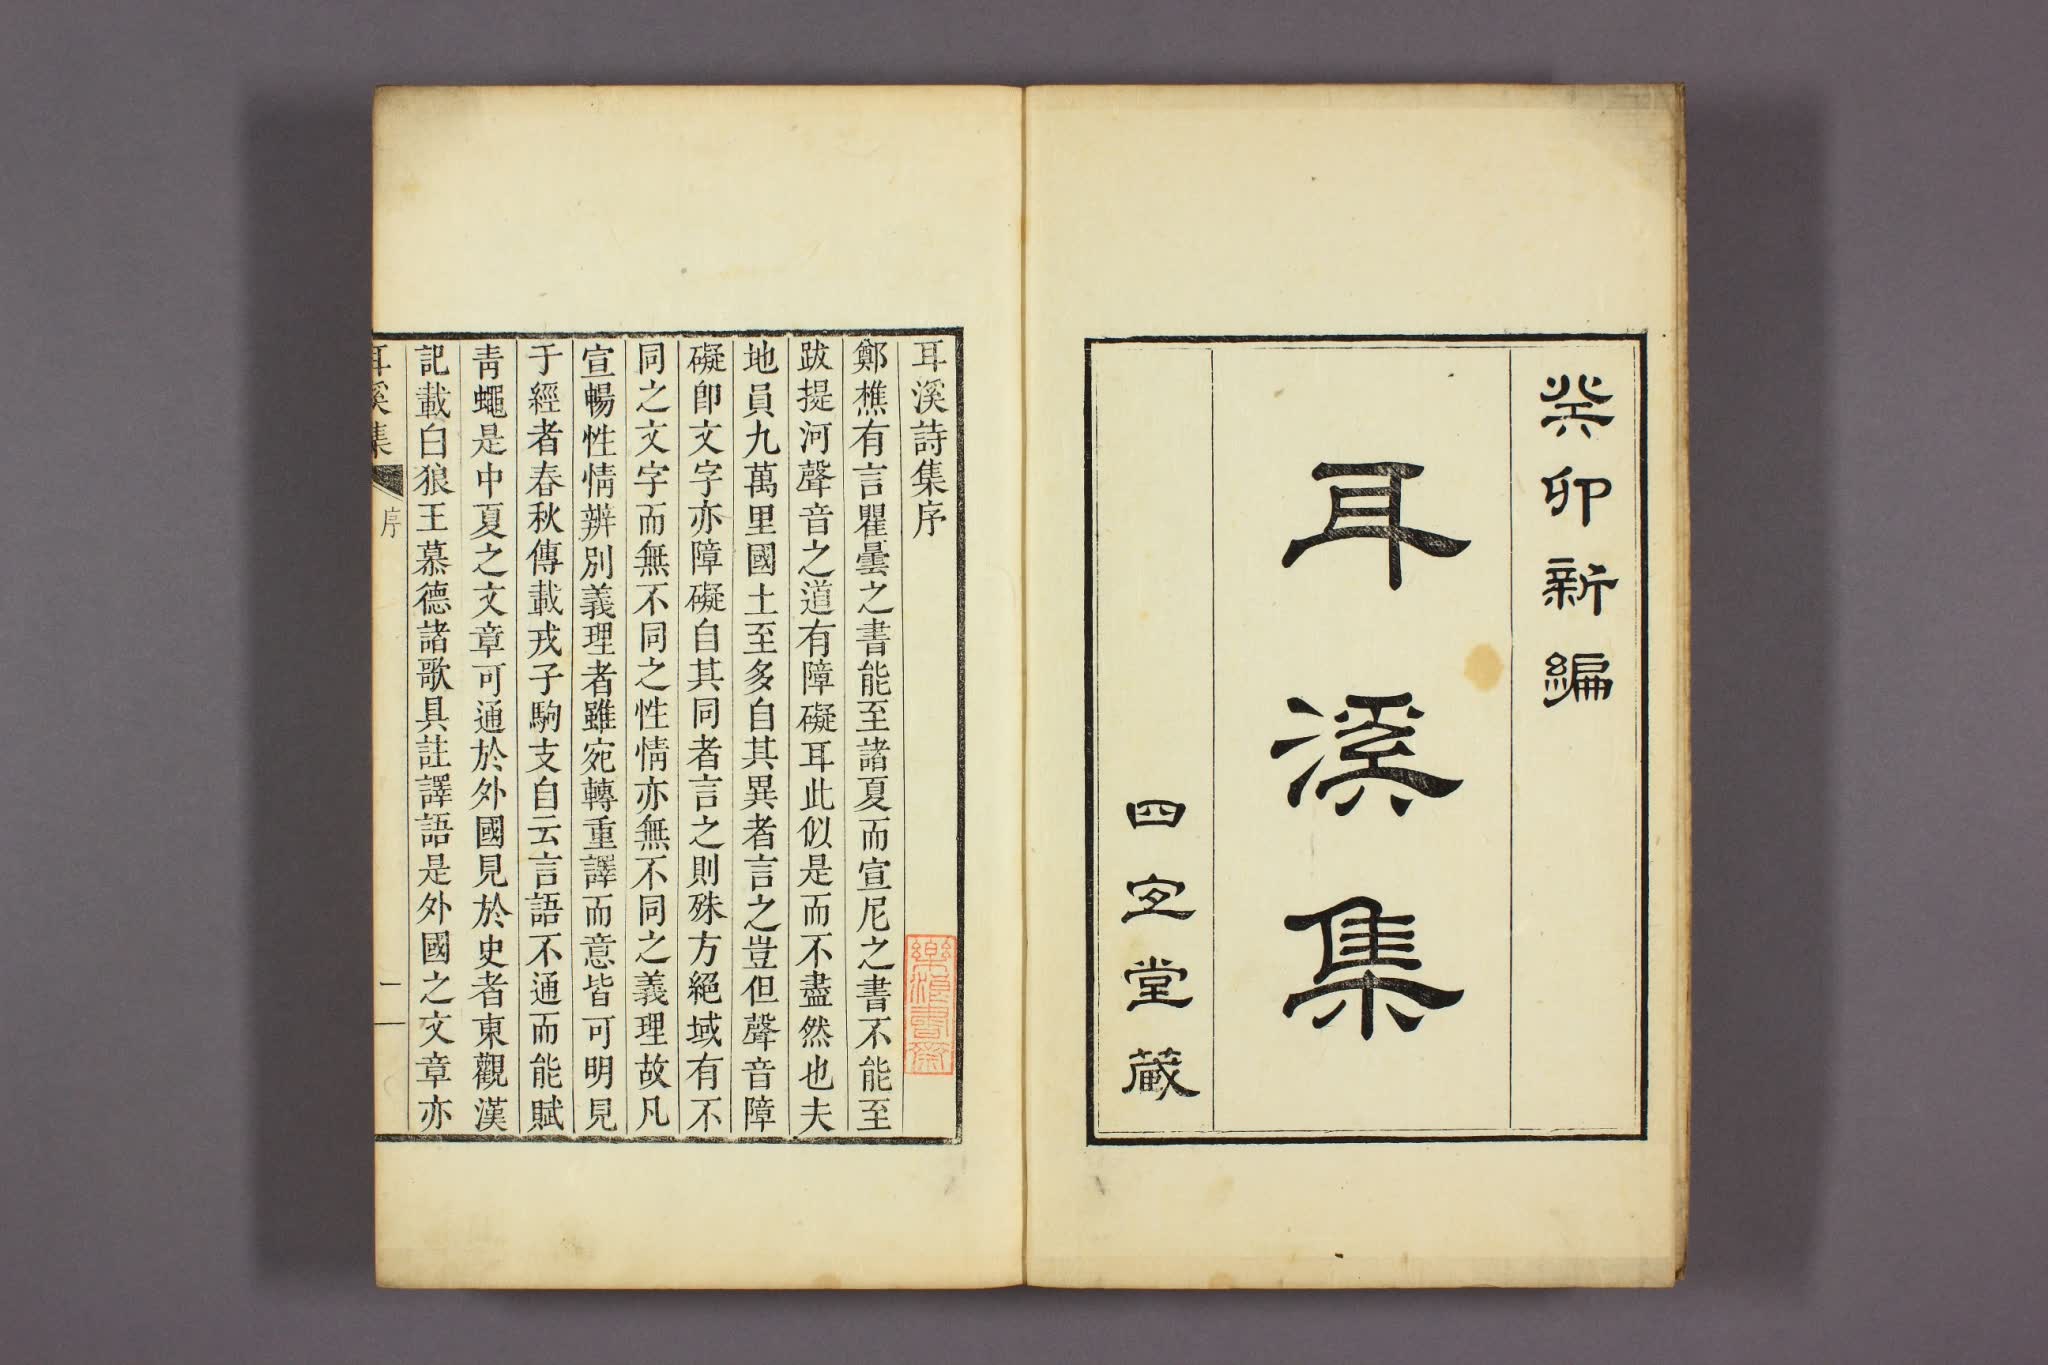 癸卯新編
耳溪集
四宜堂藏
耳溪詩集序
鄭樵有言瞿曇之書能至諸夏而宣尼之書不能至
跋提河聲音之道有障礙耳此似是而不盡然也夫
地員九萬里國土至多自其異者言之豈但聲音障
礙卽文字亦障礙自其同者言之則殊方絕域有不
同之文字而無不同之性情亦無不同之義理故凡
宣暢性情辨別義理者雖宛轉重譯而意皆可明見
于經者春秋傳載戎子駒支自云言語不通而能賦
靑蠅是中夏之文章可通於外國見於史者東觀漢
記載白狼王慕德諸歌具註譯語是外國之文章亦
耳溪集
序
一